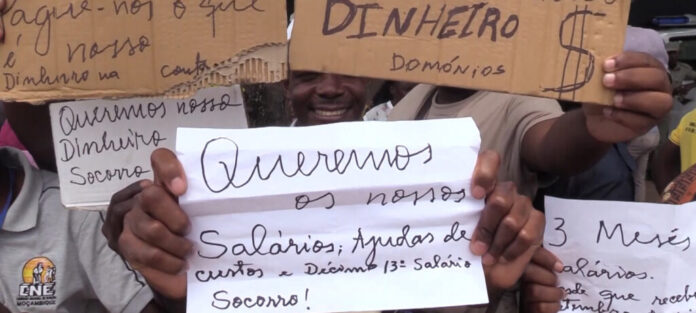 Pague-nos o que
é nosso
Dinheiro na conta
DINHEIRO
$
DOMÓNIOS
Queremos nosso
Dinheiro
Socorro
Queremos
os nossos
Salários; Ajudas de
custos e Décimo 13º Salário
Socorro!
3 Meses
Salários.
desde que receb
CNE
MOÇAMBIQUE